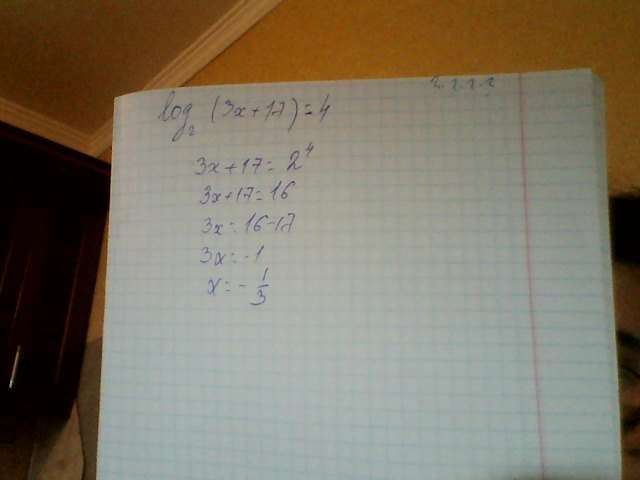 log₂ (3x+17)=4
3x+17=2⁴
3x+17=16
3x=16-17
3x=-1
x=-1/3